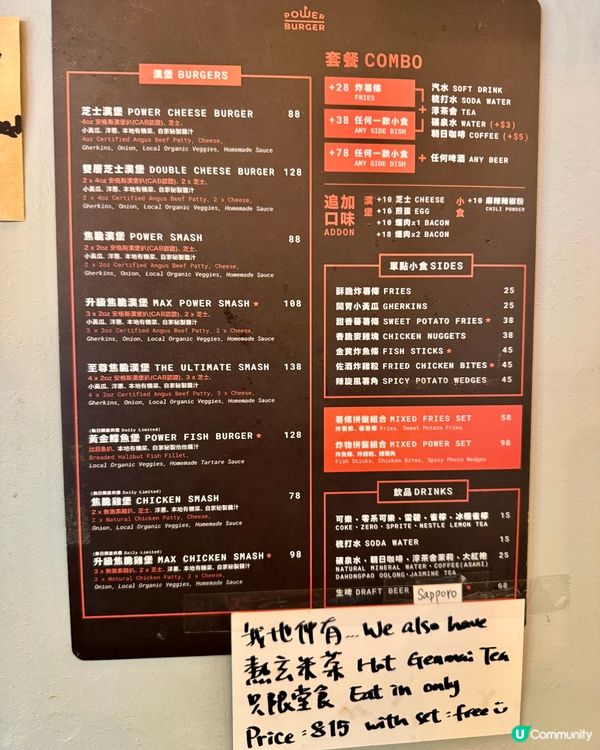 POWER
BURGER
漢堡 BURGERS
芝士漢堡 POWER CHEESE BURGER 88
4oz 安格斯漢堡扒(CAB認證), 芝士,
小黃瓜, 洋蔥, 本地有機菜, 自家秘製醬汁
4oz Certified Angus Beef Patty, Cheese,
Gherkins, Onion, Local Organic Veggies, Homemade Sauce
雙層芝士漢堡 DOUBLE CHEESE BURGER 128
2 x 4oz 安格斯漢堡扒(CAB認證), 2 x 芝士,
小黃瓜, 洋蔥, 本地有機菜, 自家秘製醬汁
2 x 4oz Certified Angus Beef Patty, 2 x Cheese,
Gherkins, Onion, Local Organic Veggies, Homemade Sauce
焦脆漢堡 POWER SMASH 88
2 x 2oz 安格斯漢堡扒(CAB認證), 芝士,
小黃瓜, 洋蔥, 本地有機菜, 自家秘製醬汁
2 x 2oz Certified Angus Beef Patty, Cheese,
Gherkins, Onion, Local Organic Veggies, Homemade Sauce
升級焦脆漢堡 MAX POWER SMASH ★ 108
3 x 2oz 安格斯漢堡扒(CAB認證), 2 x 芝士,
小黃瓜, 洋蔥, 本地有機菜, 自家秘製醬汁
3 x 2oz Certified Angus Beef Patty, 2 x Cheese,
Gherkins, Onion, Local Organic Veggies, Homemade Sauce
至尊焦脆漢堡 THE ULTIMATE SMASH 138
4 x 2oz 安格斯漢堡扒(CAB認證), 3 x 芝士,
小黃瓜, 洋蔥, 本地有機菜, 自家秘製醬汁
4 x 2oz Certified Angus Beef Patty, 3 x Cheese,
Gherkins, Onion, Local Organic Veggies, Homemade Sauce
(每日限量供應 Daily Limited)
黃金鰈魚堡 POWER FISH BURGER ★ 128
比目魚扒, 本地有機菜, 自家秘製他他醬汁
Breaded Halibut Fish Fillet,
Local Organic Veggies, Homemade Tartare Sauce
(每日限量供應 Daily Limited)
焦脆雞堡 CHICKEN SMASH 78
2 x 無激素雞扒, 芝士, 洋蔥, 本地有機菜, 自家秘製醬汁
2 x Natural Chicken Patty, Cheese,
Onion, Local Organic Veggies, Homemade Sauce
(每日限量供應 Daily Limited)
升級焦脆雞堡 MAX CHICKEN SMASH ★ 98
3 x 無激素雞扒, 2 x 芝士, 洋蔥, 本地有機菜, 自家秘製醬汁
3 x Natural Chicken Patty, 2 x Cheese,
Onion, Local Organic Veggies, Homemade Sauce
套餐 COMBO
+28 炸薯條
FRIES
+38 任何一款小食
ANY SIDE DISH
+
汽水 SOFT DRINK
梳打水 SODA WATER
淳茶舍 TEA
礦泉水 WATER (+$3)
朝日咖啡 COFFEE (+$5)
+78 任何一款小食
ANY SIDE DISH
+ 任何啤酒 ANY BEER
追加
口味
ADDON
漢堡
+10 芝士 CHEESE
+10 煎蛋 EGG
+10 煙肉x1 BACON
+18 煙肉x2 BACON
小食
+10 麻辣辣椒粉
CHILI POWDER
單點小食 SIDES
酥脆炸薯條 FRIES 25
開胃小黃瓜 GHERKINS 25
甜香蕃薯條 SWEET POTATO FRIES ★ 38
香脆麥雞塊 CHICKEN NUGGETS 38
金黃炸魚條 FISH STICKS ★ 45
佐酒炸雞粒 FRIED CHICKEN BITES ★ 45
辣旋風薯角 SPICY POTATO WEDGES 45
薯條拼盤組合 MIXED FRIES SET 58
炸薯條, 蕃薯條 Fries, Sweet Potato Fries
炸物拼盤組合 MIXED POWER SET 98
炸魚條, 炸雞粒, 辣薯角
Fish Sticks, Chicken Bites, Spicy Photo Wedges
飲品 DRINKS
可樂・零系可樂・雪碧・雀檸・冰極雀檸 15
COKE・ZERO・SPRITE・NESTLE LEMON TEA
梳打水 SODA WATER 15
礦泉水・朝日咖啡・淳茶舍茉莉・大紅袍 25
NATURAL MINERAL WATER・COFFEE(ASAHI)
DAHONGPAO OOLONG・JASMINE TEA
生啤 DRAFT BEER Sapporo ★ 68
我地仲有... We also have
熱玄米茶 Hot Genmai Tea
只限堂食 Eat in only
Price: $15 with set: free
U Community